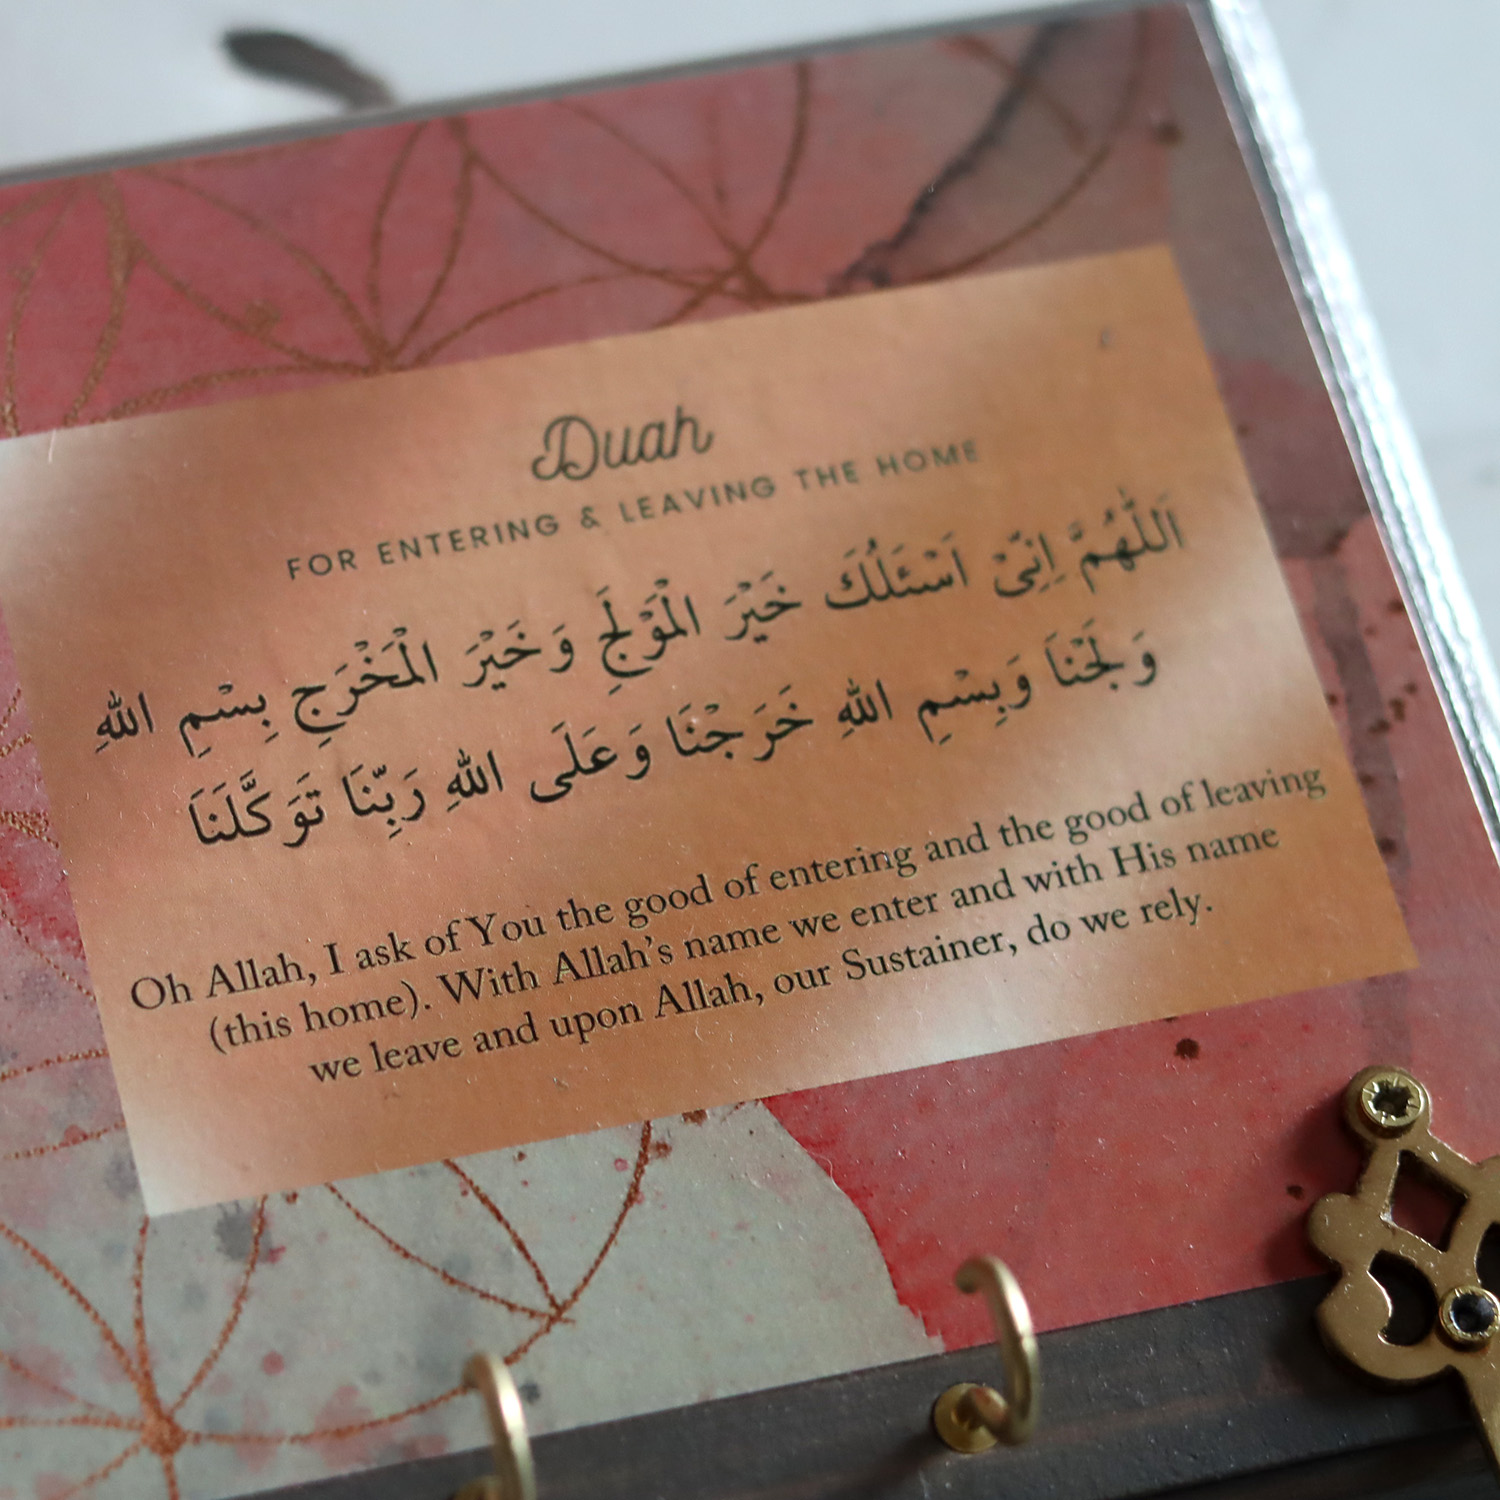 Duah
FOR ENTERING & LEAVING THE HOME
اَللّٰهُمَّ اِنِّىْ اَسْئَلُكَ خَيْرَ الْمَوْلَجِ وَخَيْرَ الْمَخْرَجِ بِسْمِ اللهِ
وَلَجْنَا وَبِسْمِ اللهِ خَرَجْنَا وَعَلَى اللهِ رَبِّنَا تَوَكَّلَنَا
Oh Allah, I ask of You the good of entering and the good of leaving
(this home). With Allah's name we enter and with His name
we leave and upon Allah, our Sustainer, do we rely.